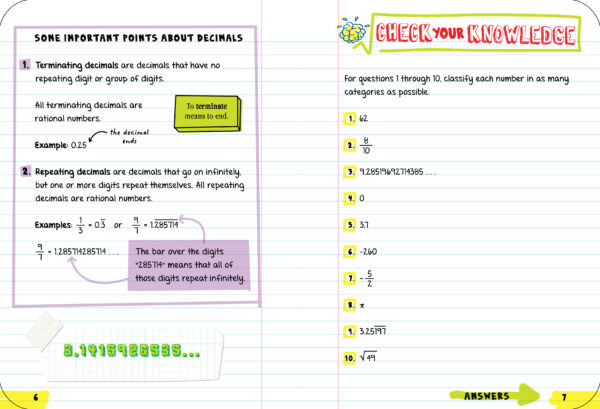 SOME IMPORTANT POINTS ABOUT DECIMALS
1. Terminating decimals are decimals that have no
repeating digit or group of digits.
All terminating decimals are
rational numbers.
To terminate
means to end.
Example: 0.25
the decimal
ends
2. Repeating decimals are decimals that go on infinitely,
but one or more digits repeat themselves. All repeating
decimals are rational numbers.
Examples: 1/3 = 0.3̅ or 9/7 = 1.2̅8̅5̅7̅1̅4̅
9/7 = 1.285714285714 . . .
The bar over the digits
"285714" means that all of
those digits repeat infinitely.
3.1415926535...
6
CHECK YOUR KNOWLEDGE
For questions 1 through 10, classify each number in as many
categories as possible.
1. 62
2. 8/10
3. 9.285196927 14385 . . .
4. 0
5. 3.7
6. -260
7. - 5/2
8. π
9. 3.251̅9̅7̅
10. √49
ANSWERS
7